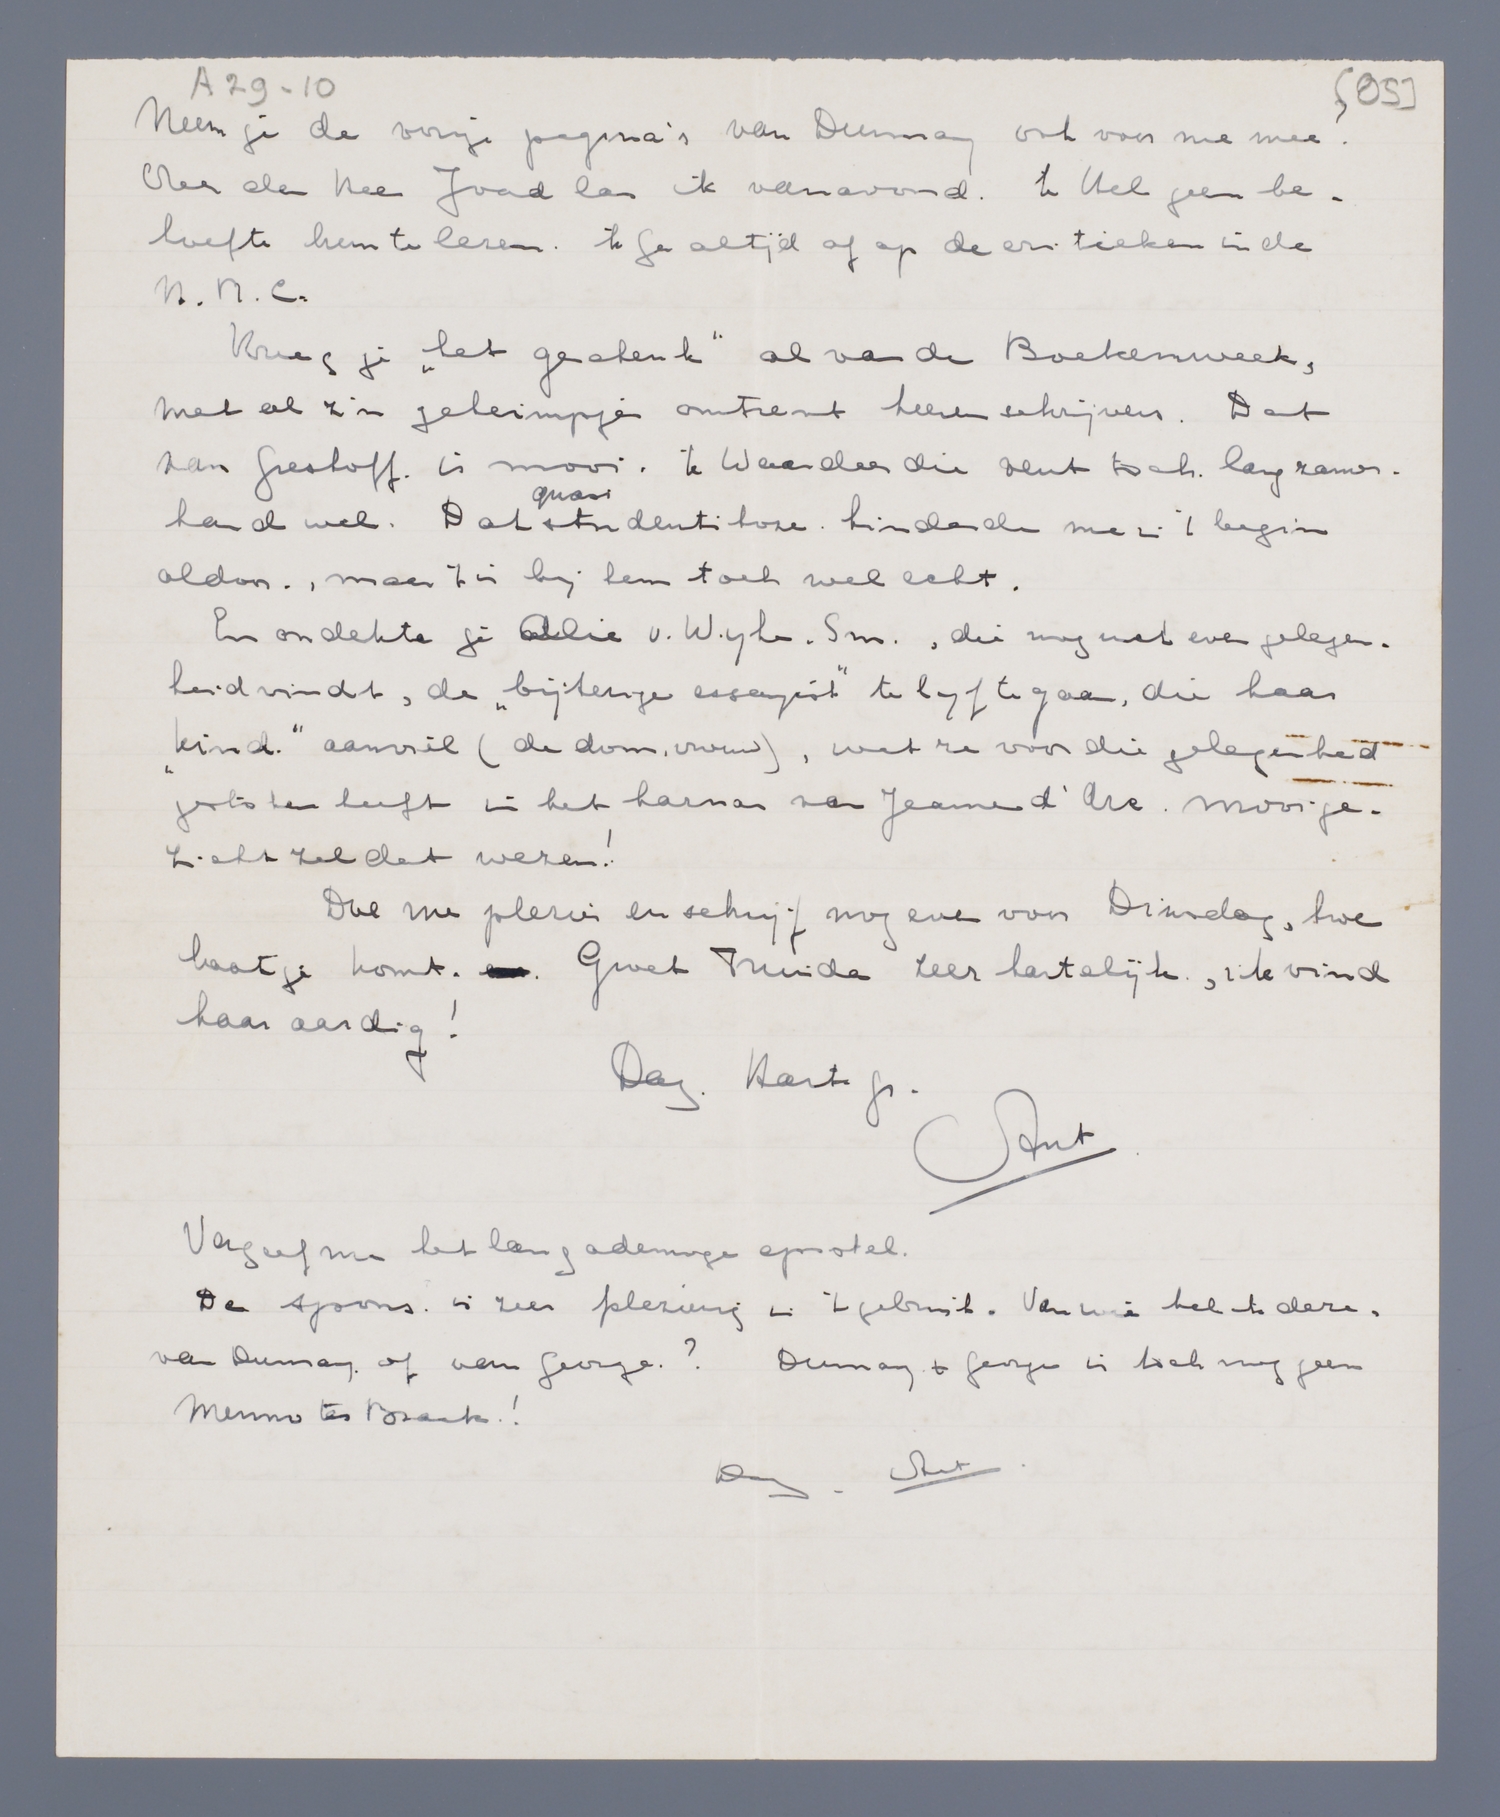 A 29-10
[05]
Neem je de vorige pagina's van Dumay ook voor me mee!
Over den Heer Joad las ik vanavond. Ik stel geen be-
hoefte hem te lezen. Ik ga altijd af op de critieken in de
N.R.C.
Kreeg je „het geschenk" al van de Boekenweek,
met al z'n geheimpjes omtrent heeren schrijvers. Dat
van Greshoff is mooi. Ik waardeer die vent toch langzamer-
hand wel. Dat quasi studentikoze hinderde me in 't begin
aldoor, maar 't is bij hem toch wel echt.
En ondekte je Alie v. Wyhe-Sm., die nog net even gelegen-
heid vindt, de „bijterige essayist" te lyf te gaan, die haar
„kind" aanviel (de dom. vrouw), wat ze voor die gelegenheid
gestoken heeft in het harnas van Jeanne d'Arc. Mooi ge-
zicht zal dat wezen!
Doe me plezier en schrijf nog even voor Dinsdag, hoe
laat je komt. Groet Truida zeer hartelijk, ik vind
haar aardig!
Dag. Hart. gr.
Ant
Vergeef me het langademige epistel.
De spons is zeer plezierig in 't gebruik. Van wie heb ik deze,
van Dumay of van George? Dumay + George is toch nog geen
Menno ter Braak!
Dag. Ant